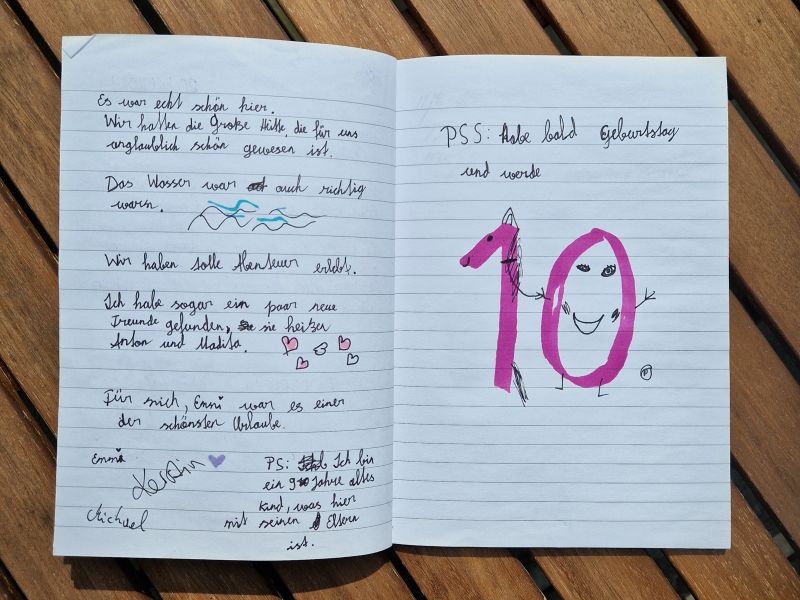 Es war echt schön hier.
Wir hatten die Große Hütte, die für uns
unglaublich schön gewesen ist.
Das Wasser war auch richtig
warm.
Wir haben tolle Abenteuer erlebt.
Ich habe sogar ein paar neue
Freunde gefunden, sie heißen
Anton und Madita.
Für mich, Emmi war es einer
der schönsten Urlaube.
Emmi
Kerstin
Michael
PS: Ich bin
ein 9 Jahre altes
Kind, was hier
mit seinen Eltern
ist.
PSS: Habe bald Geburtstag
und werde
10